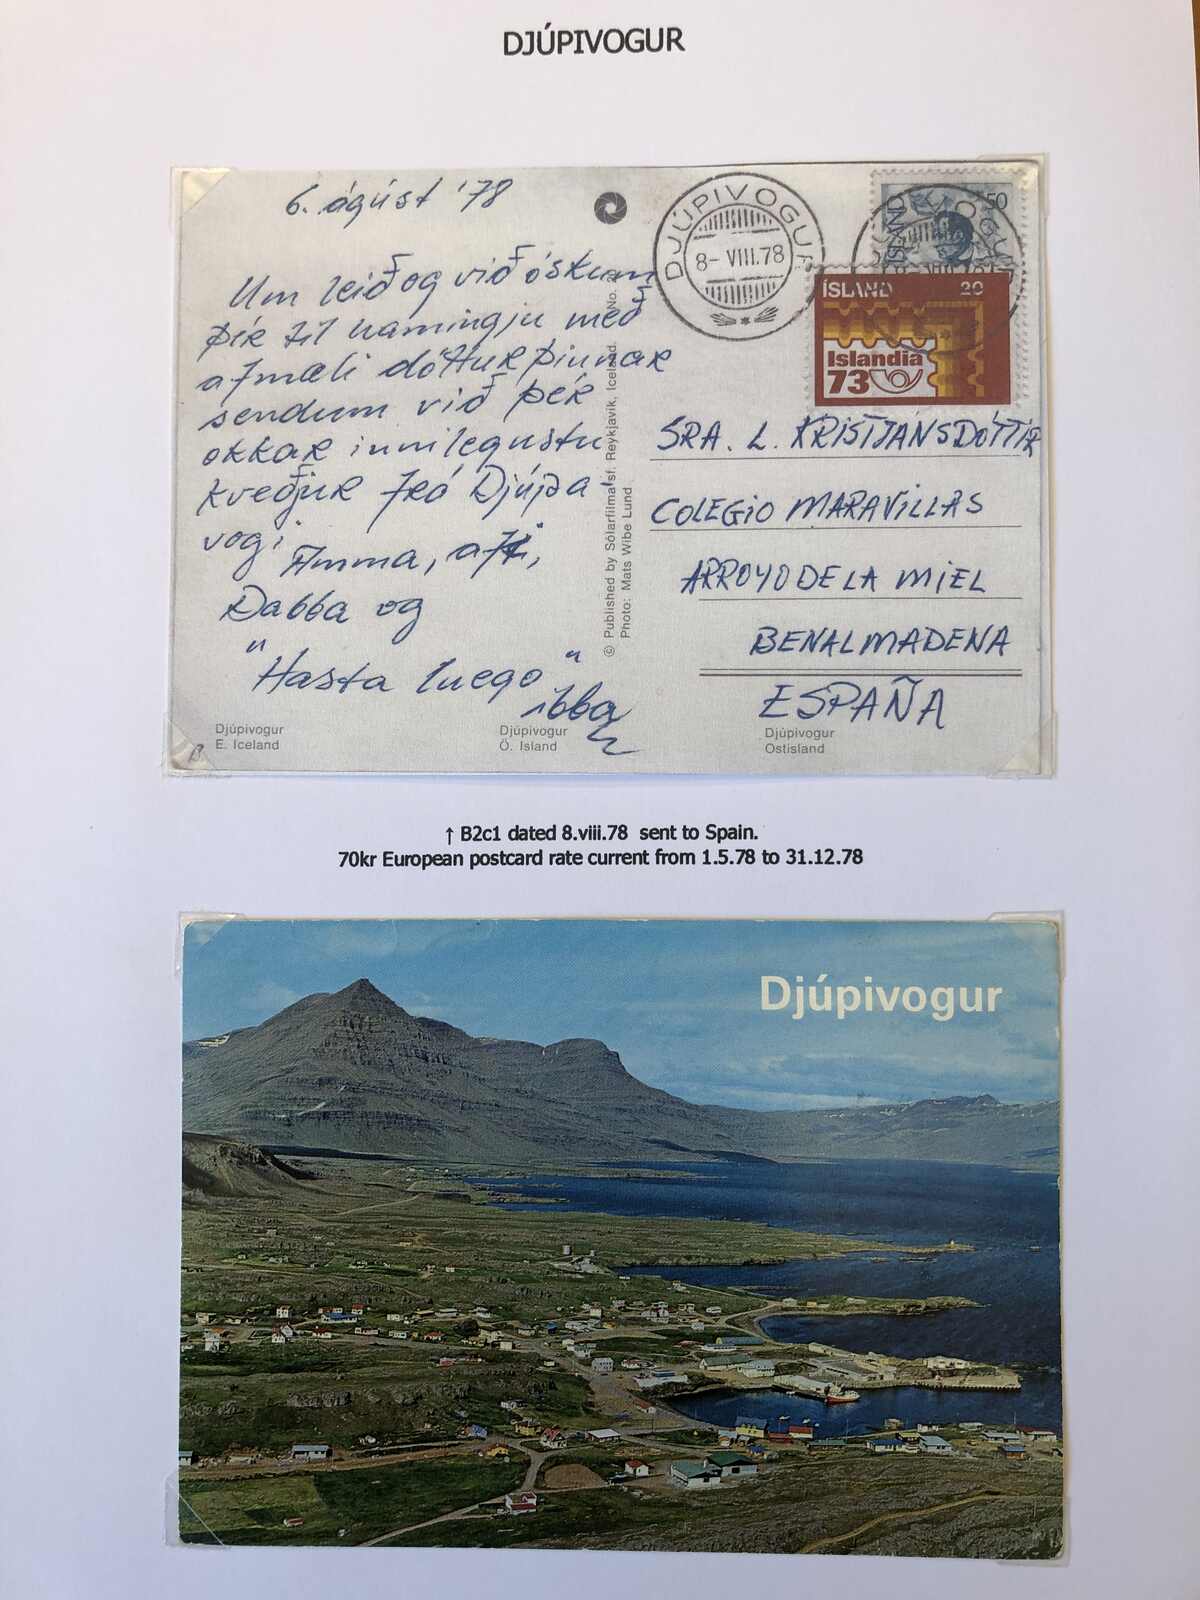 DJÚPIVOGUR
6. ágúst '78
Um leið og við óskum
þér til hamingju með
afmæli dóttur þinnar
sendum við þér
okkar innilegustu
kveðjur frá Djúpa-
vogi
Amma, afi,
Dabba og
"Hasta luego"
ibba
DJÚPIVOGUR
8- VIII.78
ÍSLAND 50
ÍSLAND 20
Islandia
73
SRA. L. KRISTJÁNSDÓTTIR
COLEGIO MARAVILLAS
ARROYO DE LA MIEL
BENALMADENA
ESPAÑA
© Published by Sólarfilma sf. Reykjavík, Iceland. No. 2
Photo: Mats Wibe Lund
Djúpivogur
E. Iceland
Djúpivogur
Ö. Island
Djúpivogur
Ostisland
↑ B2c1 dated 8.viii.78 sent to Spain.
70kr European postcard rate current from 1.5.78 to 31.12.78
Djúpivogur